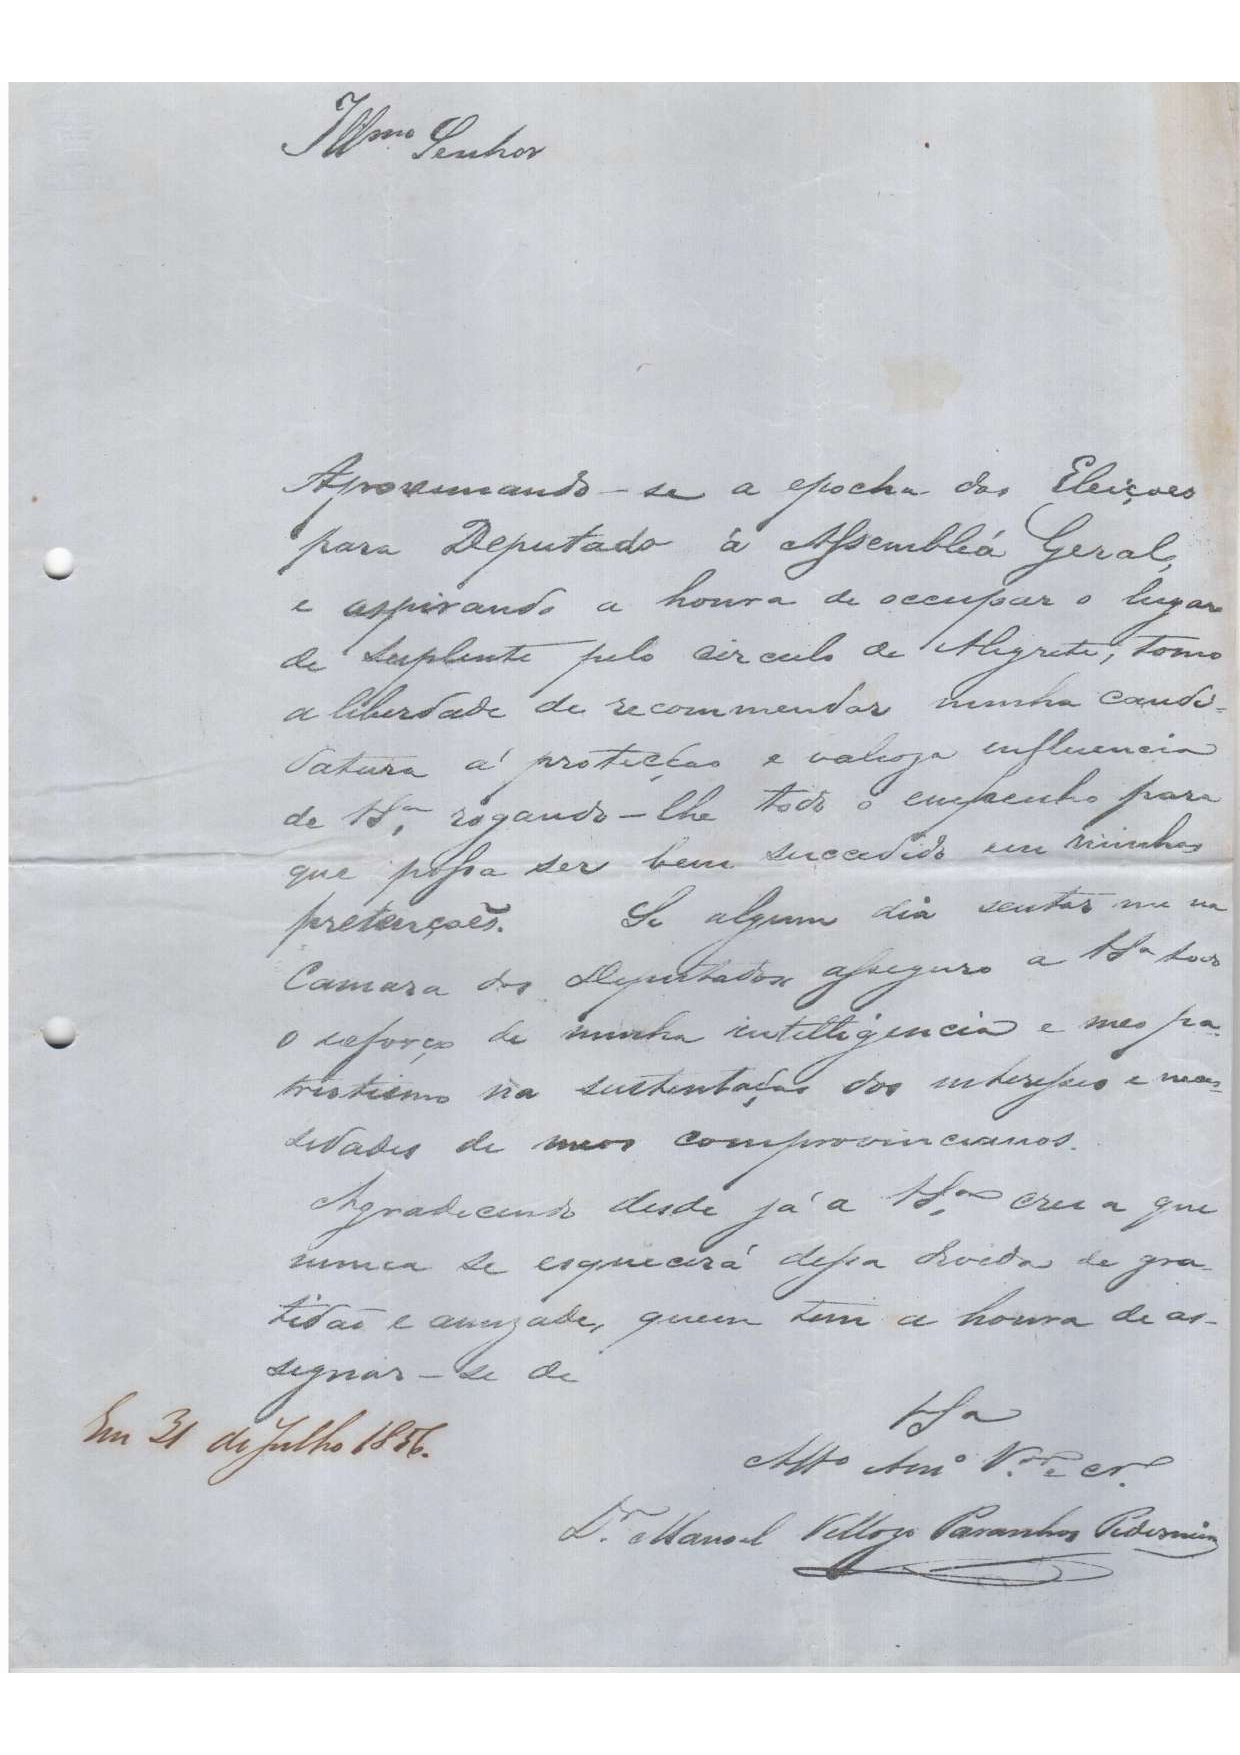 Illmo Senhor
Aproximando-se a epocha das Eleiçoes
para Deputado à Assembléa Geral,
e aspirando a honra de occupar o lugar
de Suplente pelo circulo de Alegrete, tomo
a liberdade de recommendar minha candi-
datura á protecção e valioza influencia
de VSa, rogando-lhe todo o empenho para
que possa ser bem succedido em minhas
pretenções. Se algum dia sentar me na
Camara dos Deputados asseguro a VSa todo
o esforço de minha intelligencia e meo pa-
triotismo na sustentação dos interesses e neces-
sidades de meos comprovincianos.
Agradecendo desde já a VSa, creia que
nunca se esquecerá dessa divida de gra-
tidão e amizade, quem tem a honra de as-
signar-se de
VSa
Em 31 de Julho 1856.
Atto Amo Vor e Cr
Dr Manoel Vellozo Paranhos Pederneira